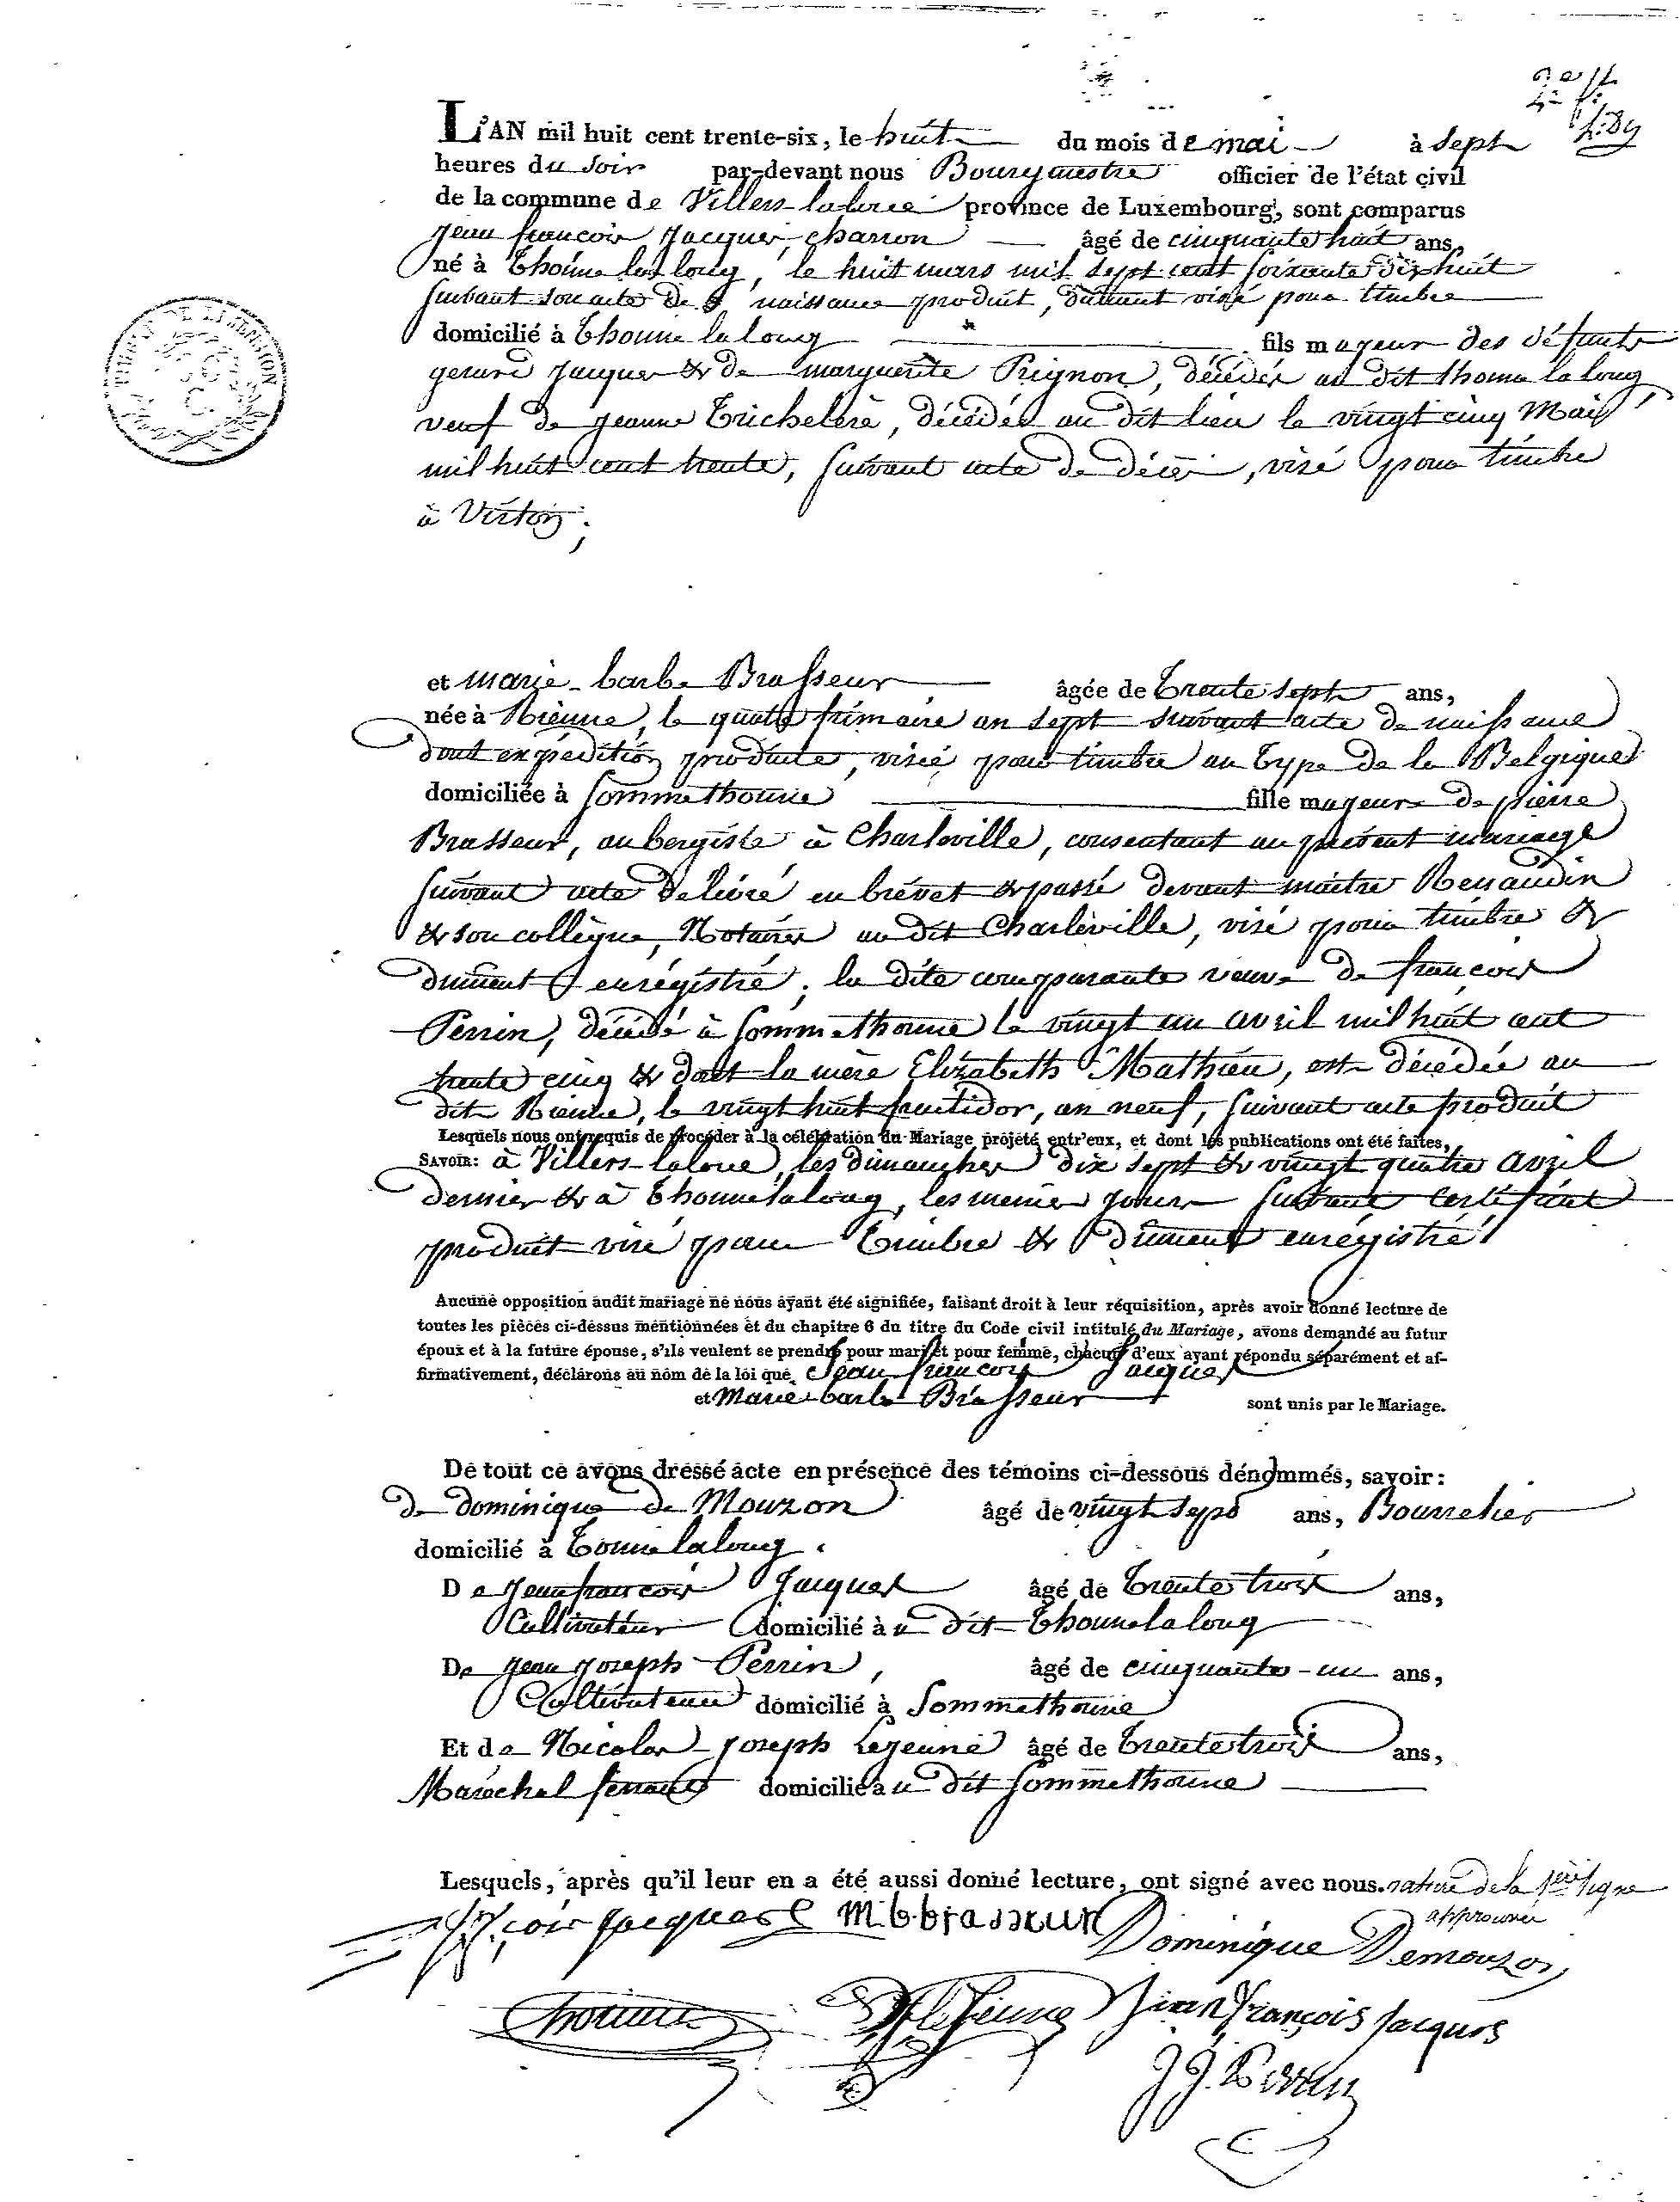 L'AN mil huit cent trente-six, le huit du mois de mai à sept
heures du soir par-devant nous Bourgmestre officier de l'état civil
de la commune de Villers-laloue province de Luxembourg, sont comparus
jean françois jacques, charron âgé de cinquante huit ans,
né à Thonne la long, le huit mars mil sept cent soixante dix huit
suivant son acte de naissance produit, dument visé pour timbre
domicilié à Thonne la long fils majeur des défunts
gerard jacques & de marguerite Prignon, décédés au dit thonne la long
veuf de jeanne Trichelère, décédée au dit lieu le vingt cinq Mai
mil huit cent trente, suivant acte de décès, visé pour timbre
à Virton;
et marie-barbe Brasseur âgée de Trente sept ans,
née à , le quatre frimaire an sept suivant acte de naissance
dont expédition produite, visée pour timbre au type de la Belgique
domiciliée à Sommethonne fille majeure de pierre
Brasseur, aubergiste à Charleville, consentant au présent mariage
suivant acte délivré en brévet & passé devant maitre Renaudin
& son collègue, Notaires au dit Charleville, visé pour timbre &
dument enrégistré; la dite comparante veuve de françois
Perrin, décédé à Sommethonne le vingt un avril mil huit cent
trente cinq & dont la mère Elizabeth Mathieu, est décédée au
dit , le vingt huit fructidor, an neuf, suivant acte produit
Lesquels nous ont requis de procéder à la célébration du Mariage projété entr'eux, et dont les publications ont été faites,
SAVOIR: à Villers-laloue, les dimanches dix sept & vingt quatre avril
dernier & à Thonnelalong, les memes jours suivant certificat
produit visé pour Timbre & dument enrégistré
Aucune opposition audit mariage ne nous ayant été signifiée, faisant droit à leur réquisition, après avoir donné lecture de
toutes les pièces ci-dessus mentionnées et du chapitre 6 du titre du Code civil intitulé du Mariage, avons demandé au futur
époux et à la future épouse, s'ils veulent se prendre pour mari et pour femme, chacun d'eux ayant répondu séparément et af-
firmativement, déclarons au nom de la loi que Jean françois Jacques
et Marie barbe Brasseur sont unis par le Mariage.
De tout ce avons dressé acte en présence des témoins ci-dessous dénommés, savoir:
de dominique de Mouzon âgé de vingt sept ans, Bourrelier
domicilié à Tonnelalong.
De Jean françois Jacques âgé de Trente trois ans,
Cultivateur domicilié au dit Thonnelalong
De Jean Joseph Perrin, âgé de cinquante-un ans,
Cultivateur domicilié à Sommethonne
Et de Nicolas-Joseph Lejeune âgé de Trente trois ans,
Maréchal ferrant domicilié au dit Sommethonne
Lesquels, après qu'il leur en a été aussi donné lecture, ont signé avec nous. rature de la 5ème ligne
approuvée
frçois jacques m.b.brasseur
Dominique Demouzon
Lejeune Jean françois Jacques
J J. Perrin